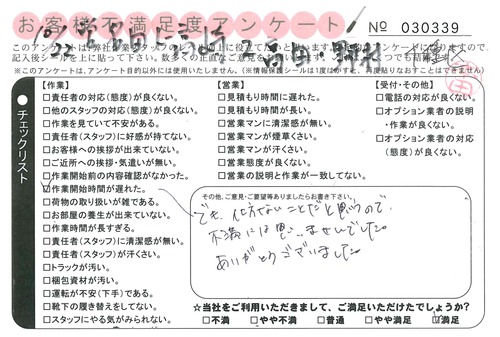 お客様不満足度アンケート
No 030339
このアンケートは弊社
※このアンケートは、アンケート目的以外には使用いたしません。(※情報保護シールは1度はがすと、再度貼りなおすことはできません)
チェックリスト
【作業】
□責任者の対応(態度)が良くない。
□他のスタッフの対応(態度)が良くない。
□作業を見ていて不安がある。
□責任者(スタッフ)に好感が持てない。
□お客様への挨拶が出来ていない。
□ご近所への挨拶・気遣いが無い。
□作業開始前の内容確認がなかった。
☑作業開始時間が遅れた。
□荷物の取り扱いが雑である。
□お部屋の養生が出来ていない。
□作業時間が長すぎる。
□責任者(スタッフ)に清潔感が無い。
□責任者(スタッフ)が汗くさい。
□トラックが汚い。
□梱包資材が汚い。
□運転が不安(下手)である。
□靴下の履き替えをしてない。
□スタッフにやる気がみられない。
【営業】
□見積もり時間に遅れた。
□見積もり時間が長い。
□営業マンに清潔感が無い。
□営業マンが煙草くさい。
□営業マンが汗くさい。
□営業態度が良くない。
□営業の説明と作業が一致してない。
【受付・その他】
□電話の対応が良くない。
□オプション業者の説明
・作業が良くない。
□オプション業者の対応
(態度)が良くない。
その他、ご意見・ご要望等ありましたらお書き下さい。
でも、仕方ないことだと思うので、
不満には思いませんでした。
ありがとうございました。
☆当社をご利用いただきまして、ご満足いただけたでしょうか?
□不満 □やや不満 □普通 □やや満足 ☑満足